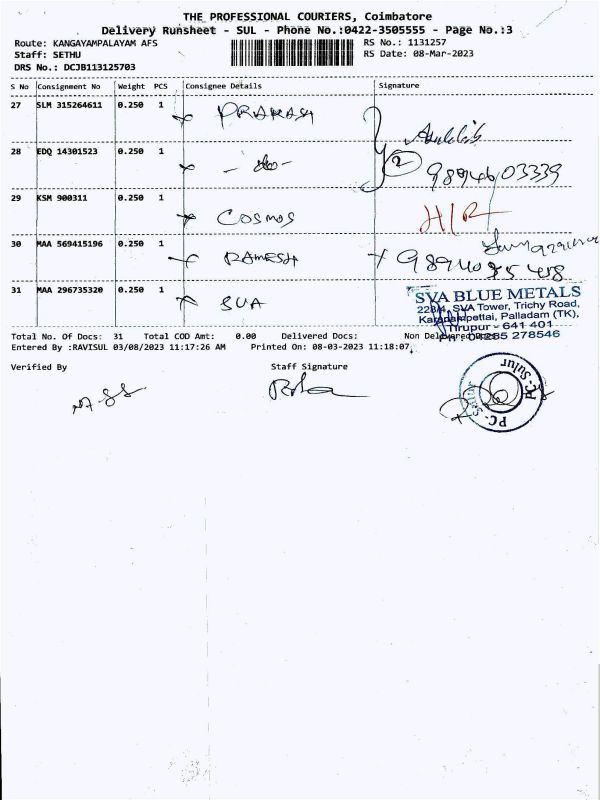 THE PROFESSIONAL COURIERS, Coimbatore
Delivery Runsheet - SUL - Phone No.:0422-3505555 - Page No.:3
Route: KANGAYAMPALAYAM AFS
RS No.: 1131257
Staff: SETHU
RS Date: 08-Mar-2023
DRS No.: DCJB113125703
S No Consignment No Weight PCS Consignee Details Signature
27 SLM 315264611 0.250 1 PRAKASH
28 EDQ 14301523 0.250 1 - do - 2 9894603339
29 KSM 900311 0.250 1 COSMOS H/R
30 MAA 569415196 0.250 1 RAMESH
31 MAA 296735320 0.250 1 SVA
SVA BLUE METALS
228/4, SVA Tower, Trichy Road,
Karanampettai, Palladam (TK),
Tirupur - 641 401
04255 278546
Total No. Of Docs: 31 Total COD Amt: 0.00 Delivered Docs: Non Delivered Docs:
Entered By :RAVISUL 03/08/2023 11:17:26 AM Printed On: 08-03-2023 11:18:07
Verified By Staff Signature
PC-Sulur